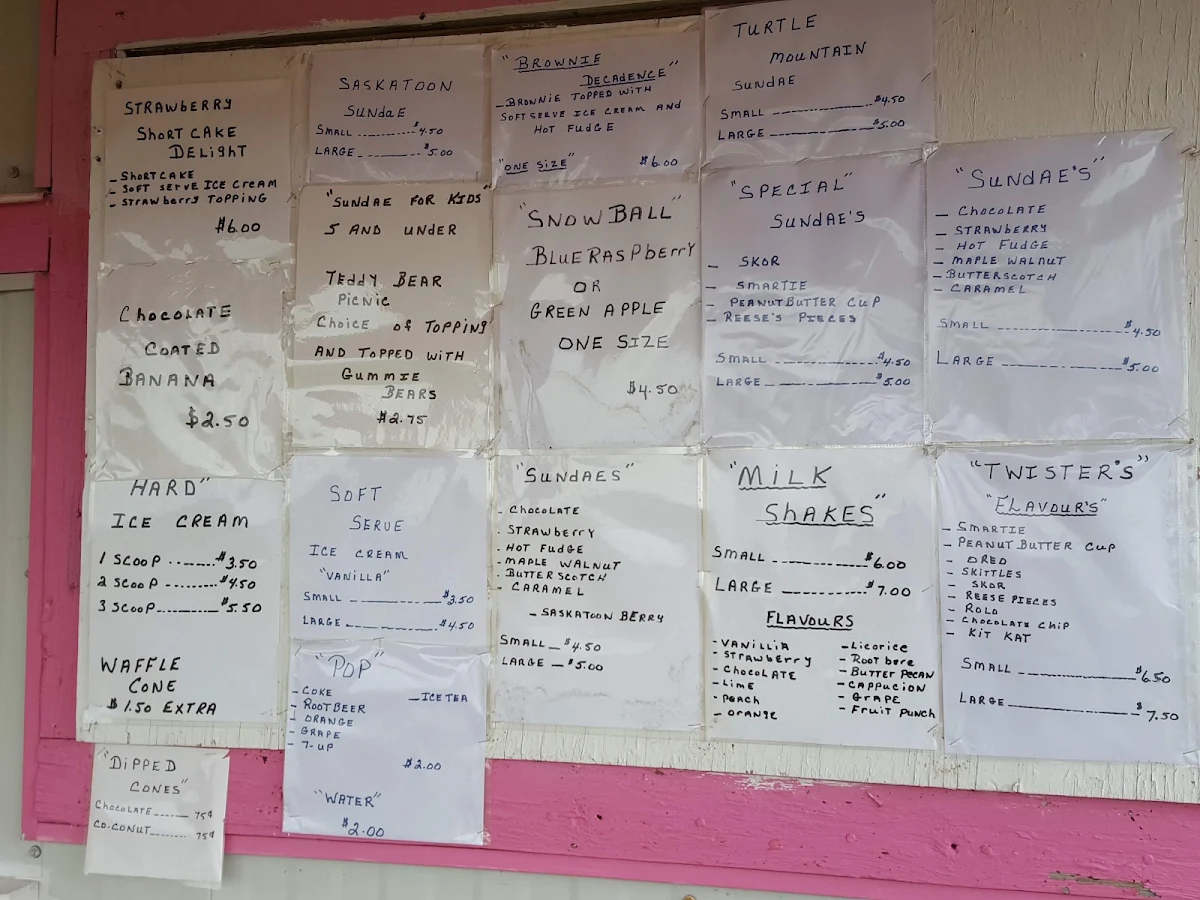 STRAWBERRY
SHORT CAKE
DELIGHT
- SHORTCAKE
- SOFT SERVE ICE CREAM
- STRAWBERRY TOPPING
$6.00
SASKATOON
SUNDAE
SMALL ---------- $4.50
LARGE ---------- $5.00
"BROWNIE
DECADENCE"
- BROWNIE TOPPED WITH
SOFT SERVE ICE CREAM AND
HOT FUDGE
"ONE SIZE" $6.00
TURTLE
MOUNTAIN
SUNDAE
SMALL ---------- $4.50
LARGE ---------- $5.00
CHOCOLATE
COATED
BANANA
$2.50
"SUNDAE FOR KIDS"
5 AND UNDER
TEDDY BEAR
PICNIC
CHOICE OF TOPPING
AND TOPPED WITH
GUMMIE
BEARS
$2.75
"SNOW BALL"
BLUE RASPBERRY
OR
GREEN APPLE
ONE SIZE
$4.50
"SPECIAL"
SUNDAE'S
- SKOR
- SMARTIE
- PEANUTBUTTER CUP
- REESE'S PIECES
SMALL ---------- $4.50
LARGE ---------- $5.00
"SUNDAE'S"
- CHOCOLATE
- STRAWBERRY
- HOT FUDGE
- MAPLE WALNUT
- BUTTERSCOTCH
- CARAMEL
SMALL ---------- $4.50
LARGE ---------- $5.00
HARD"
ICE CREAM
1 SCOOP ------- $3.50
2 SCOOP -------- $4.50
3 SCOOP --------- $5.50
WAFFLE
CONE
$1.50 EXTRA
SOFT
SERVE
ICE CREAM
"VANILLA"
SMALL ---------- $3.50
LARGE ---------- $4.50
"SUNDAES"
- CHOCOLATE
- STRAWBERRY
- HOT FUDGE
- MAPLE WALNUT
- BUTTERSCOTCH
- CARAMEL
- SASKATOON BERRY
SMALL - $4.50
LARGE - $5.00
"MILK
SHAKES"
SMALL ---------- $6.00
LARGE ---------- $7.00
FLAVOURS
- VANILLIA
- STRAWBERRY
- CHOCOLATE
- LIME
- PEACH
- ORANGE
- LICORICE
- ROOT BERE
- BUTTER PECAN
- CAPPUCION
- GRAPE
- FRUIT PUNCH
"TWISTER'S"
"FLAVOUR'S"
- SMARTIE
- PEANUT BUTTER CUP
- OREO
- SKITTLES
- SKOR
- REESE PIECES
- ROLO
- CHOCOLATE CHIP
- KIT KAT
SMALL ---------- $6.50
LARGE ---------- $7.50
"POP"
- COKE
- ROOTBEER
- ORANGE
- GRAPE
- 7-UP
- ICE TEA
$2.00
"WATER"
$2.00
"DIPPED
CONES"
CHOCOLATE ------ 75¢
CO.CONUT ------- 75¢